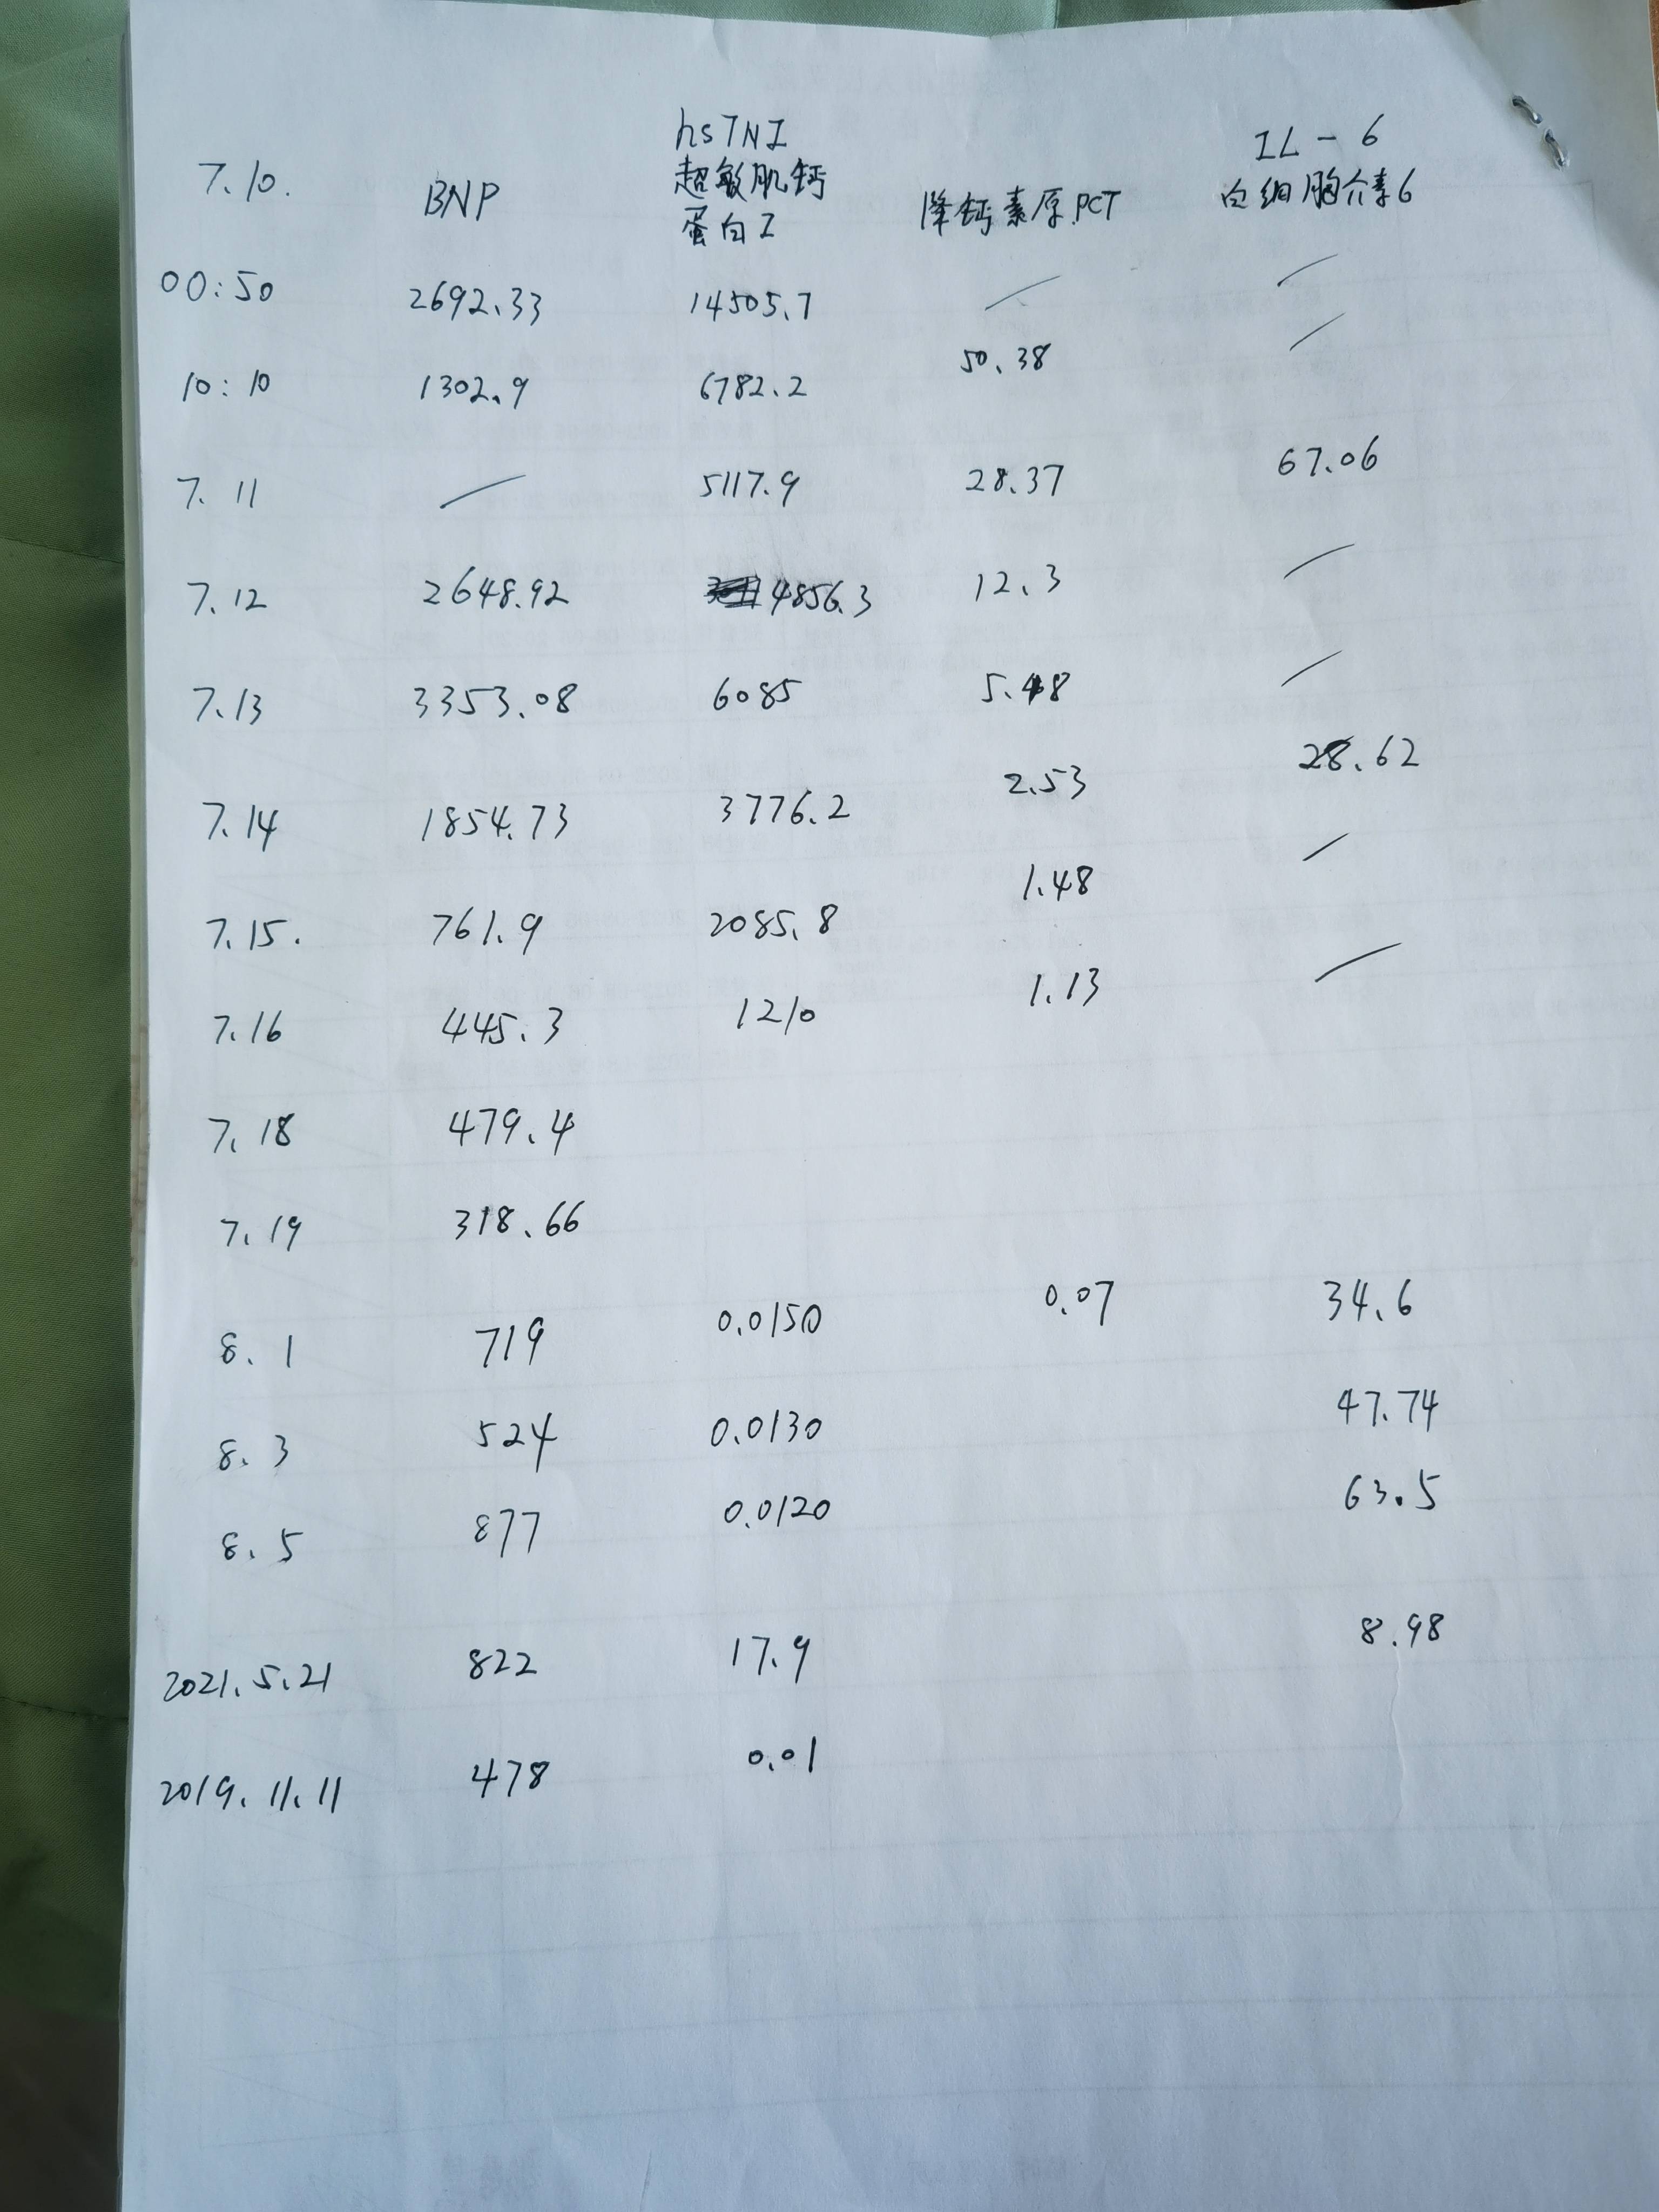 hsTNI IL-6
7.10. BNP 超敏肌钙蛋白I 降钙素原PCT 白细胞介素6
00:50 2692.33 14505.7 / /
10:10 1302.9 6782.2 50.38 /
7.11 / 5117.9 28.37 67.06
7.12 2648.92 4856.3 12.3 /
7.13 3353.08 6085 5.48 /
7.14 1854.73 3776.2 2.53 28.62
7.15. 761.9 2085.8 1.48 /
7.16 445.3 1210 1.13 /
7.18 479.4
7.19 318.66
8.1 719 0.0150 0.07 34.6
8.3 524 0.0130 47.74
8.5 877 0.0120 63.5
2021.5.21 822 17.9 8.98
2019.11.11 478 0.01